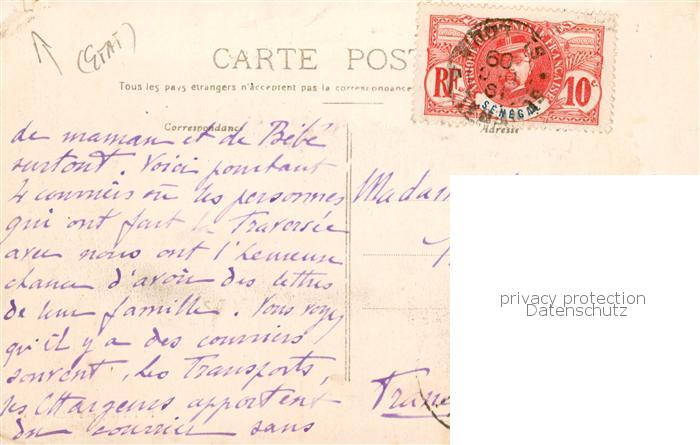 (ETAT)
CARTE POST
Tous les pays étrangers n'acceptent pas la correspondance
Correspondance
Adresse
RF
10c
SÉNÉGAL
de maman et de Bébé
surtout. Voici pourtant
4 courriers où les personnes
qui ont fait la Traversée
avec nous ont l'heureuse
chance d'avoir des lettres
de leur famille. Vous voyez
qu'il y a des courriers
souvent, les Transports,
les Chargeurs apportent
du courrier sans
Madam
Fran
privacy protection
Datenschutz